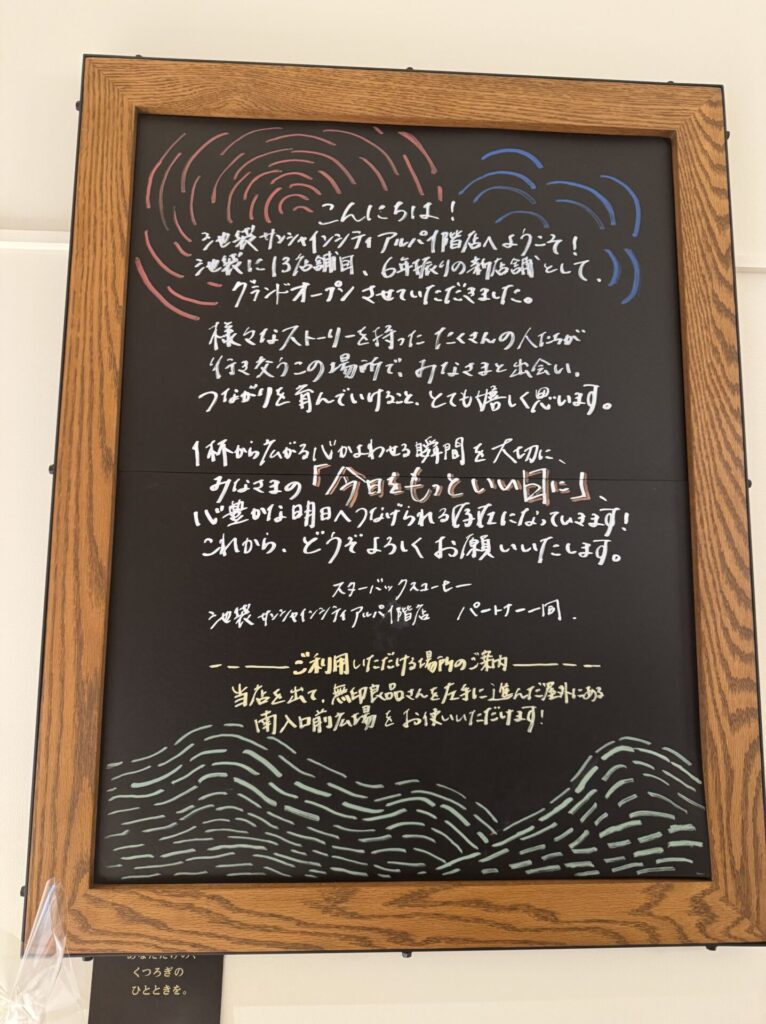 こんにちは!
池袋サンシャインシティアルパ1階店へようこそ!
池袋に13店舗目、6年振りの新店舗として、
グランドオープンさせていただきました。
様々なストーリーを持ったたくさんの人たちが
行き交うこの場所で、みなさまと出会い、
つながりを育んでいけること、とても嬉しく思います。
1杯から広がる心かよわせる瞬間を大切に、
みなさまの「今日をもっといい日に」、
心豊かな明日へつなげられる存在になっていきます!
これから、どうぞよろしくお願いいたします。
スターバックスコーヒー
池袋サンシャインシティアルパ1階店 パートナー一同.
ご利用いただける場所のご案内
当店を出て、無印良品さんを左手に進んだ屋外にある
南入口前広場をお使いいただけます!
あなただけの、
くつろぎの
ひとときを。